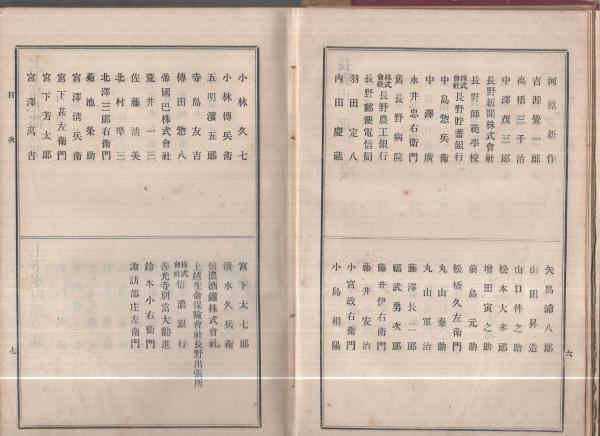 河原新作
吉源覺一郎
高橋三千治
中澤茂三郎
長野新聞株式會社
長野師範學校
株式會社長野貯蓄銀行
中島惣兵衛
中澤廣
永井忠右衛門
舊長野病院
株式會社長野農工銀行
長野郵便電信局
羽田定八
内田慶蔵
矢島浦八郎
山田昇造
山口作之助
松本大多郎
增田寅之助
前島元助
松橋久左衛門
丸山泰助
丸山軍治
藤澤長二郎
福武勇次郎
藤井伊右衛門
藤井安治
小宮政右衛門
小島相陽
六
小林久七
小林傳兵衛
五明濱五郎
寺島友吉
傳田惣八
帝國巴株式會社
荒井一三
佐藤清美
北村庄三
北澤三郎右衛門
菊池彙助
宮澤淸兵衛
宮下甚左衛門
宮下芳太郎
宮澤萬吉
宮下太七郎
淸水久兵衛
信濃酒類株式會社
上越生命保險會社長野出張所
株式會社信濃銀行
善光寺別當大勸進
鈴木小右衛門
諏訪部庄左衛門
目次
七